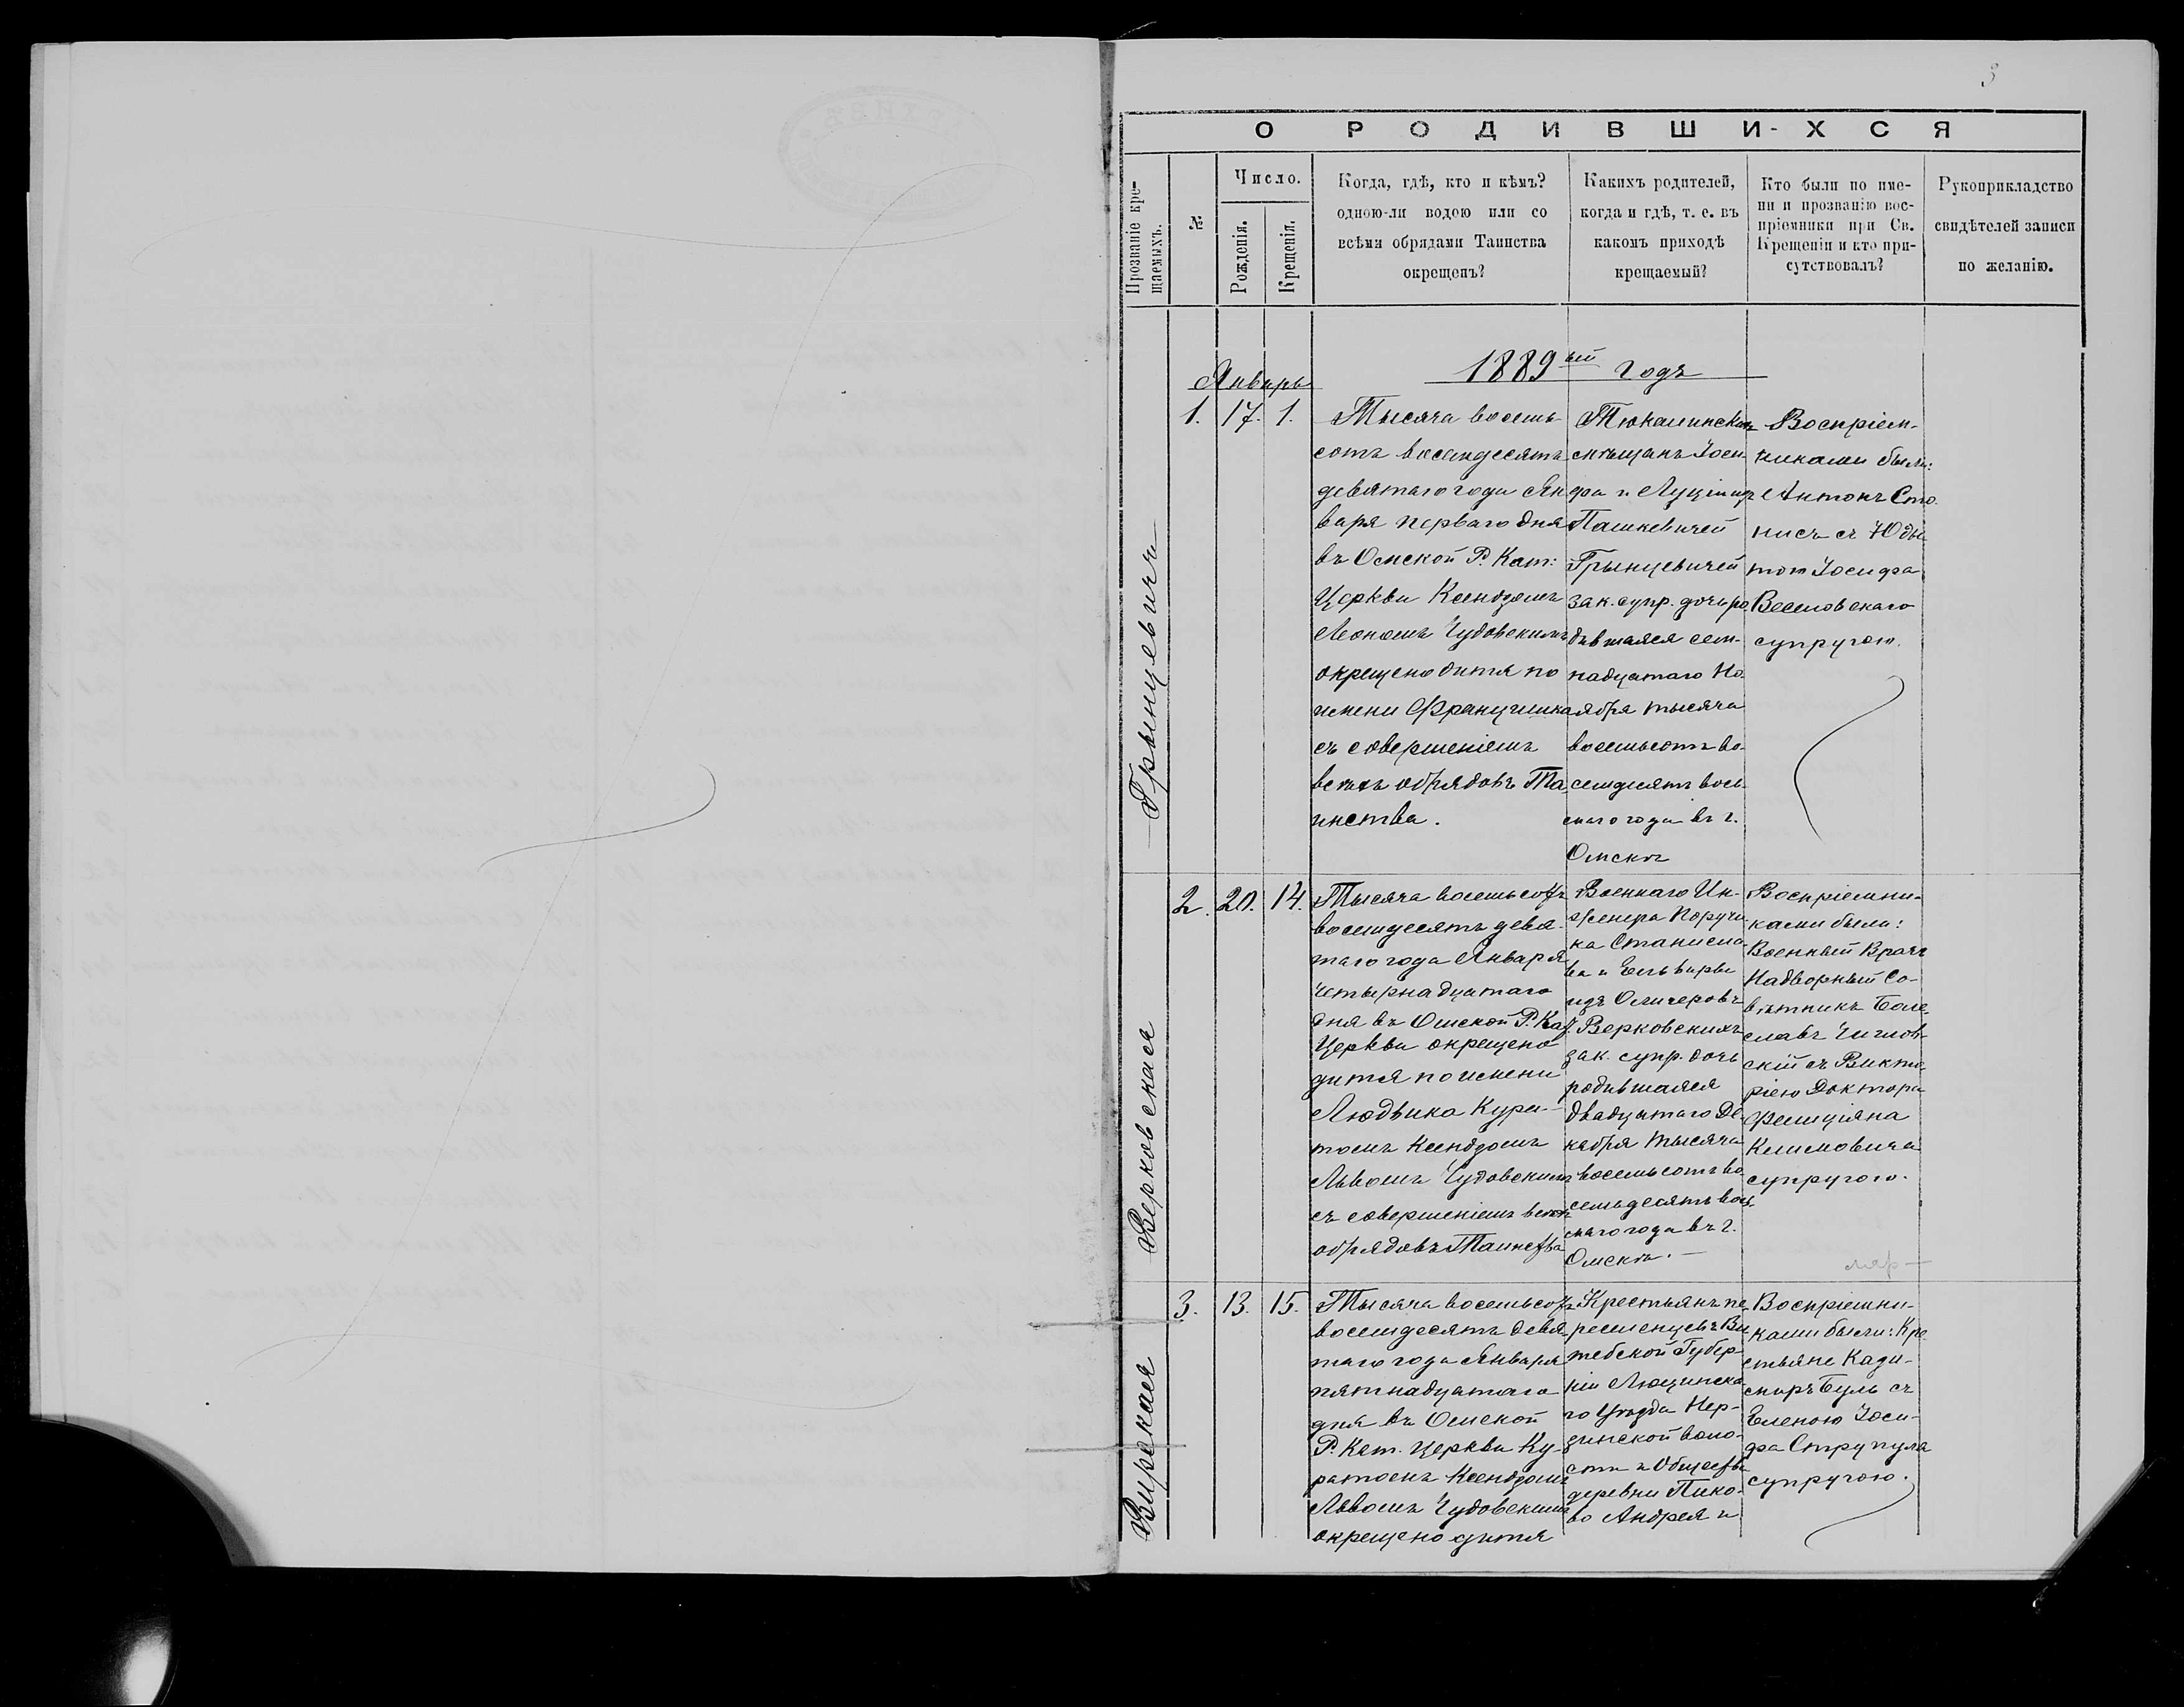 3
О РОДИВШИ-ХСЯ
Прозваніе кре-
щаемыхъ.
№
Число.
Рожденія.
Крещенія.
Когда, гдѣ, кто и кѣмъ?
одною-ли водою или со
всѣми обрядами Таинства
окрещенъ?
Какихъ родителей,
когда и гдѣ, т. е. въ
какомъ приходѣ
крещаемый?
Кто были по име-
ни и прозванію вос-
пріемники при Св.
Крещеніи и кто при-
сутствовалъ?
Рукоприкладство
свидѣтелей записи
по желанію.
1889ый годъ
Январь
Грынцевичъ
1. 17. 1.
Тысяча восемь-
сотъ восемдесятъ
девятаго года Ян
варя перваго дня
въ Омской Р. Кат:
Церкви Ксендзомъ
Леономъ Чудовскимъ
окрещено дитя по
имени Францишка
съ совершеніемъ
всѣхъ обрядовъ Та-
инства.
Тюкалинскихъ
мѣщанъ Іоси-
фа и Луціи изъ
Пашкевичей
Грынцевичей
зак. супр. дочь ро
дившаяся сем-
надцатаго Но-
ября тысяча
восемьсотъ во-
семдесятъ вось-
маго года въ г.
Омскѣ
Воспріем-
никами были:
Антонъ Сто
нисъ съ Юди
тою Іосифа
Веселовскаго
супругою.
Верковская
2. 20. 14.
Тысяча восемьсотъ
восемдесятъ девя-
таго года Января
четырнадцатаго
дня въ Омской Р. Кат.
Церкви окрещено
дитя по имени
Людвика Кура-
томъ Ксендзомъ
Львомъ Чудовскимъ
съ совершеніемъ всѣхъ
обрядовъ Таинства
Военнаго Ин-
женера Поручи-
ка Станисла-
ва и Ельвиры
изъ
Верковскихъ
зак. супр. дочь
родившаяся
двадцатаго Де-
кабря тысяча
восемьсотъ во
семьдесятъ вось
маго года въ г.
Омскѣ.
Воспріемни-
ками были:
Военный Врачъ
Надворный Со-
вѣтникъ Боле
славъ
скій съ Викто-
ріею Доктора
Фелиціяна
Климовича
супругою.
Вирская
3. 13. 15.
Тысяча восемьсотъ
восемдесятъ девя
таго года Января
пятнадцатаго
дня въ Омской
Р. Кат. Церкви Ку-
ратомъ Ксендзомъ
Львомъ Чудовскимъ
окрещено дитя
Крестьянъ пе
реселенцевъ Ви
тебской Губер-
ніи Люцинска-
го Уѣзда Нер-
зинской воло-
сти и Общества
деревни Пико-
во Андрея и
Воспріемни-
ками были: Кре
стьяне Кази-
миръ Буль съ
Еленою Іоси-
фа Струпула
супругою.